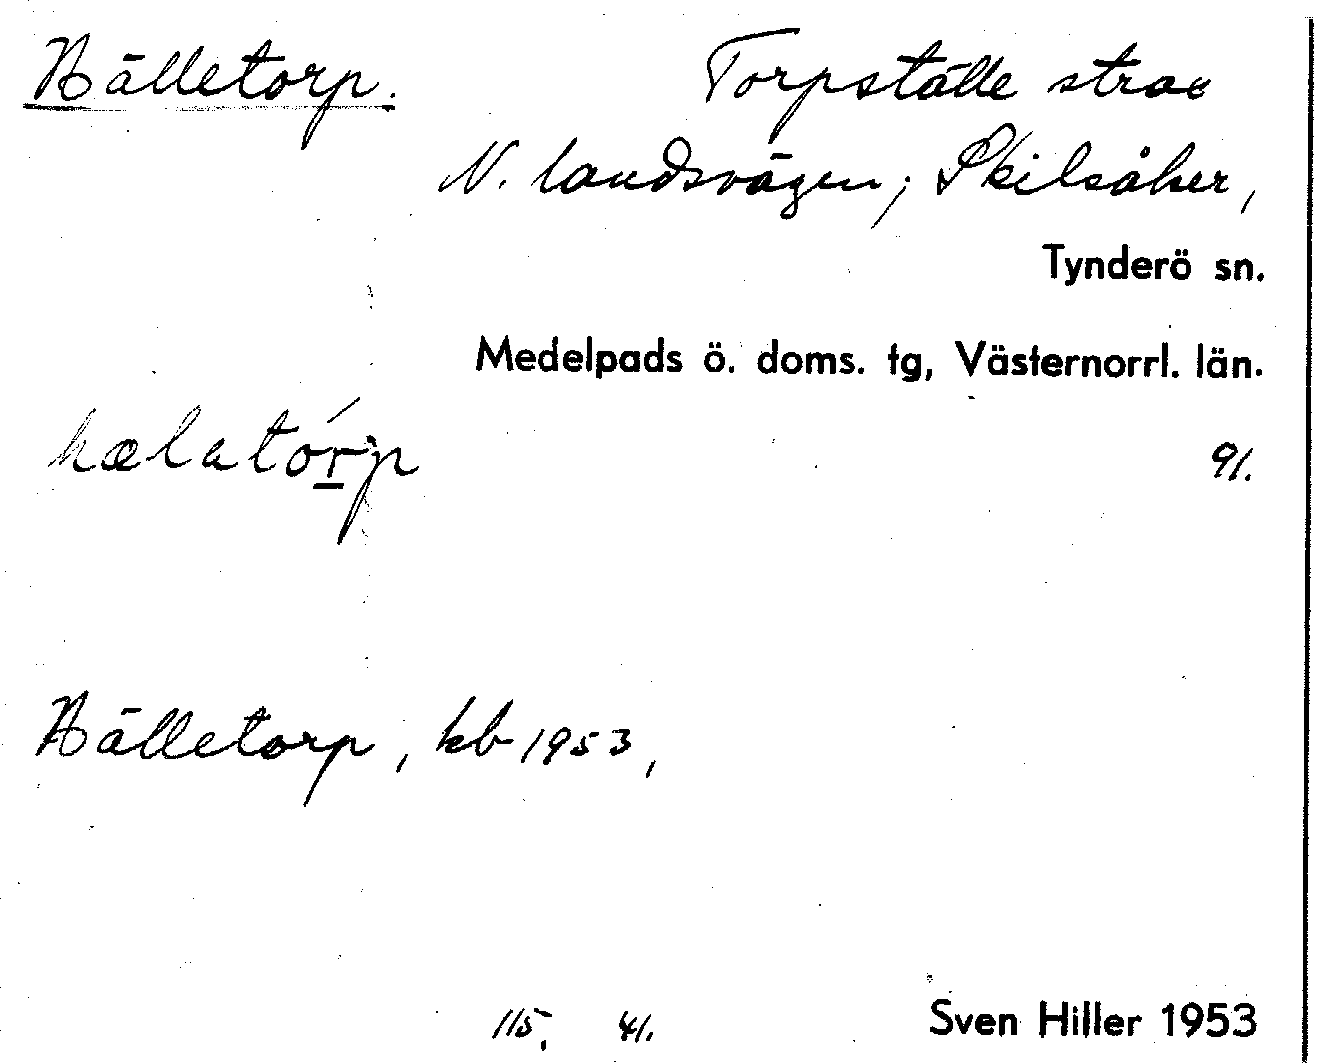 Hälletorp. Torpställe strax
N. landsvägen; Skilsåker,
Tynderö sn.
Medelpads ö. doms. tg, Västernorrl. län.
hælatórp 91.
Hälletorp, kb 1953,
115, 41. Sven Hiller 1953